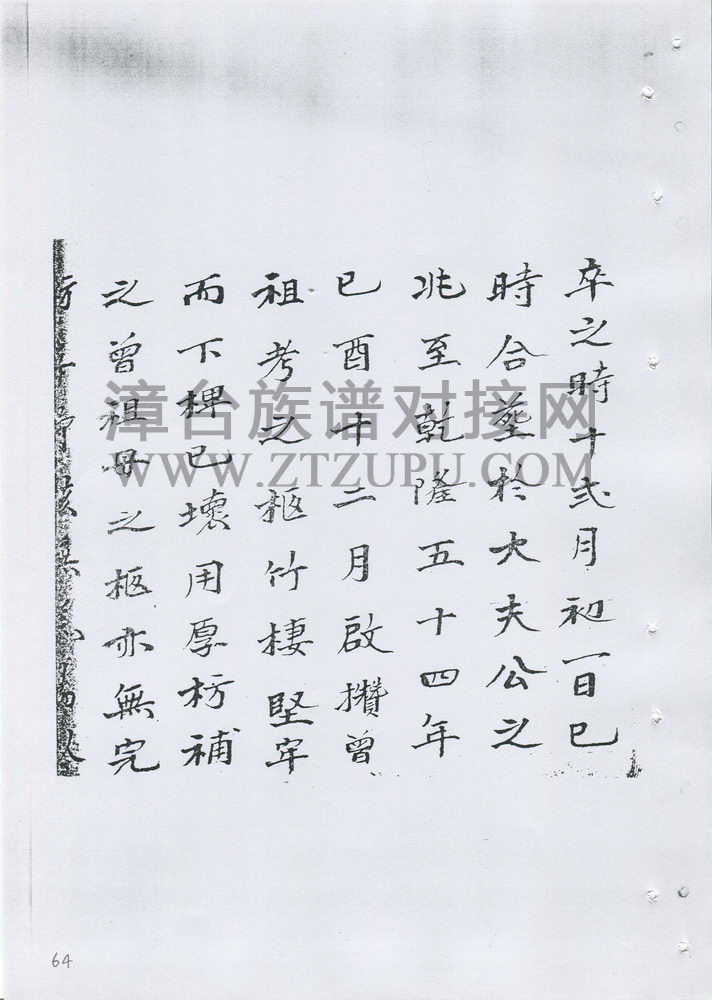 卒之時十弍月初一日巳
時合葬於大夫公之
兆至乾隆五十四年
己酉十二月啟攢曾
祖考之柩竹棲堅牢
而下椑已壞用厚枋補
之曾祖母之柩亦無完
漳台族谱对接网
WWW.ZTZUPU.COM
64